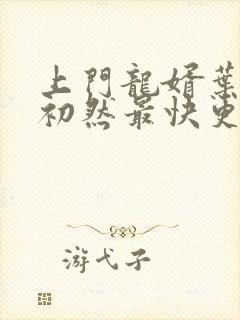 上門龍婿葉
初然最快更
游弋子